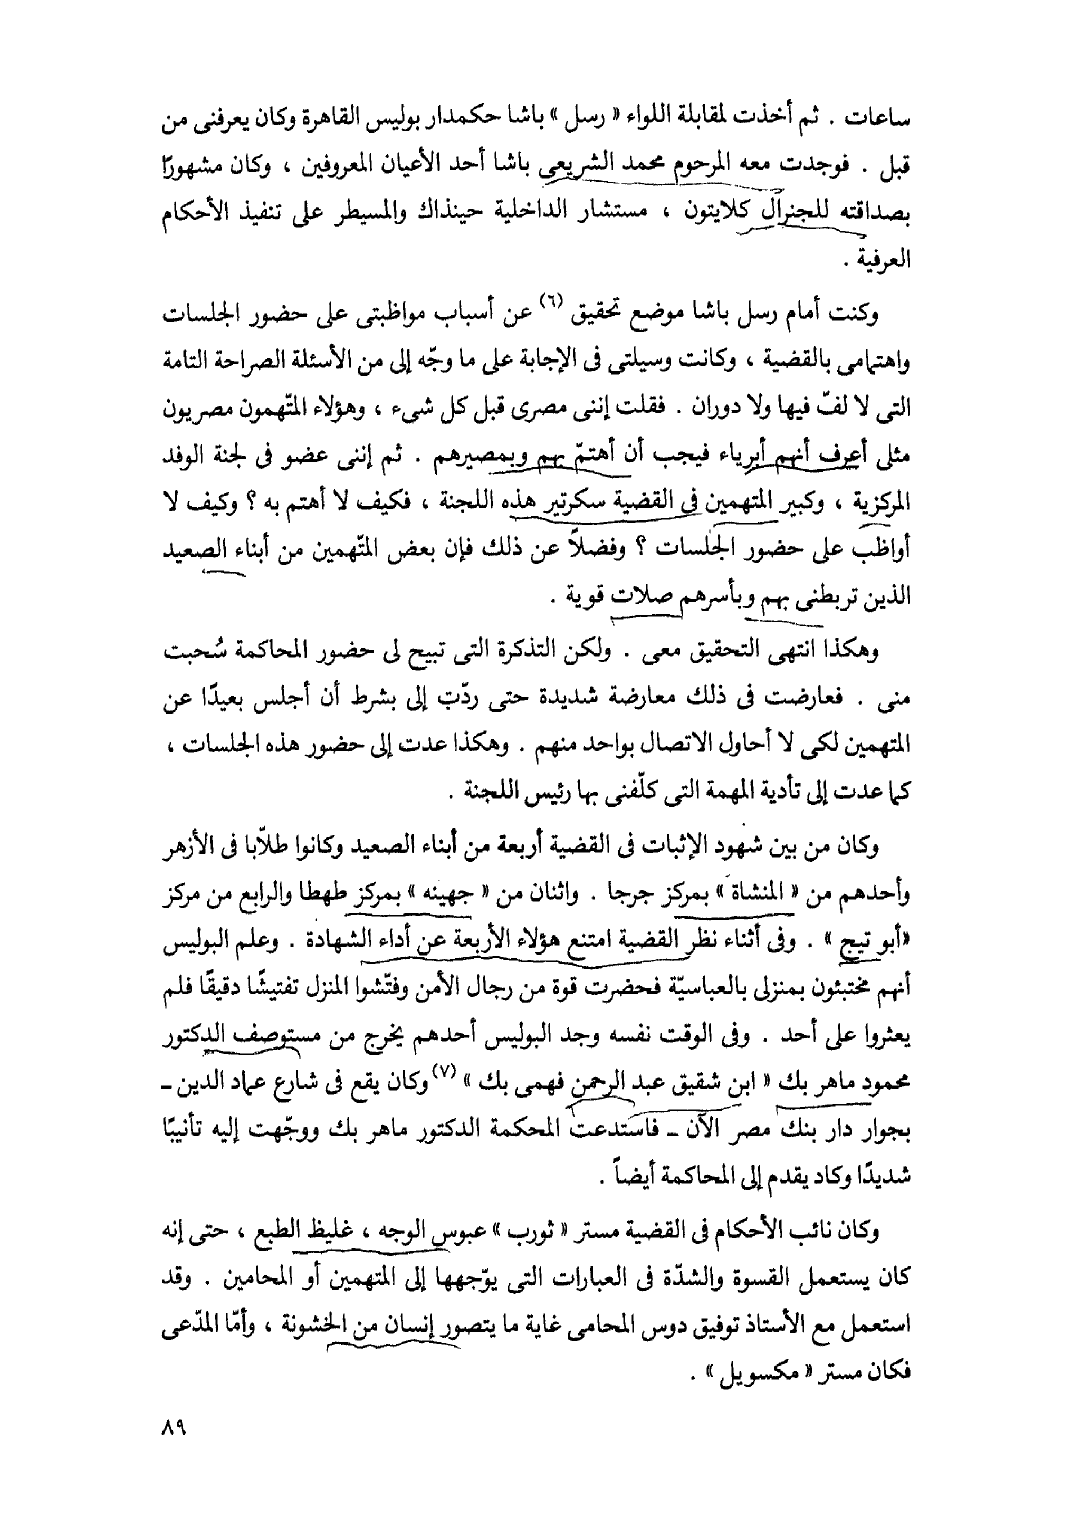 ساعات . ثم أخذت لمقابلة اللواء « رسل » باشا حكمدار بوليس القاهرة وكان يعرفنى من
قبل . فوجدت معه المرحوم محمد الشريعى باشا أحد الأعيان المعروفين ، وكان مشهورًا
بصداقته للجنرال كلايتون ، مستشار الداخلية حينذاك والمسيطر على تنفيذ الأحكام
العرفية .
وكنت أمام رسل باشا موضع تحقيق (٦) عن أسباب مواظبتى على حضور الجلسات
واهتمامى بالقضية ، وكانت وسيلتى فى الإجابة على ما وجّه إلى من الأسئلة الصراحة التامة
التى لا لفّ فيها ولا دوران . فقلت إننى مصرى قبل كل شىء ، وهؤلاء المتّهمون مصريون
مثلى أعرف أنهم أبرياء فيجب أن أهتمّ بهم وبمصيرهم . ثم إننى عضو فى لجنة الوفد
المركزية ، وكبير المتهمين فى القضية سكرتير هذه اللجنة ، فكيف لا أهتم به ؟ وكيف لا
أواظب على حضور الجلسات ؟ وفضلاً عن ذلك فإن بعض المتّهمين من أبناء الصعيد
الذين تربطنى بهم وبأسرهم صلات قوية .
وهكذا انتهى التحقيق معى . ولكن التذكرة التى تبيح لى حضور المحاكمة سُحبت
منى . فعارضت فى ذلك معارضة شديدة حتى ردّت إلى بشرط أن أجلس بعيدًا عن
المتهمين لكى لا أحاول الاتصال بواحد منهم . وهكذا عدت إلى حضور هذه الجلسات ،
كما عدت إلى تأدية المهمة التى كلّفنى بها رئيس اللجنة .
وكان من بين شهود الإثبات فى القضية أربعة من أبناء الصعيد وكانوا طلاّبا فى الأزهر
وأحدهم من « المنشاة » بمركز جرجا . واثنان من « جهينه » بمركز طهطا والرابع من مركز
«أبو تيج » . وفى أثناء نظر القضية امتنع هؤلاء الأربعة عن أداء الشهادة . وعلم البوليس
أنهم مختبئون بمنزلى بالعباسيّة فحضرت قوة من رجال الأمن وفتّشوا المنزل تفتيشًا دقيقًا فلم
يعثروا على أحد . وفى الوقت نفسه وجد البوليس أحدهم يخرج من مستوصف الدكتور
محمود ماهر بك « ابن شقيق عبد الرحمن فهمى بك » (٧) وكان يقع فى شارع عماد الدين ـ
بجوار دار بنك مصر الآن ـ فاستدعت المحكمة الدكتور ماهر بك ووجّهت إليه تأنيبًا
شديدًا وكاد يقدم إلى المحاكمة أيضاً .
وكان نائب الأحكام فى القضية مستر « ثورب » عبوس الوجه ، غليظ الطبع ، حتى إنه
كان يستعمل القسوة والشدّة فى العبارات التى يوّجهها إلى المتهمين أو المحامين . وقد
استعمل مع الأستاذ توفيق دوس المحامى غاية ما يتصور إنسان من الخشونة ، وأمّا المدّعى
فكان مستر « مكسويل » .
٨٩